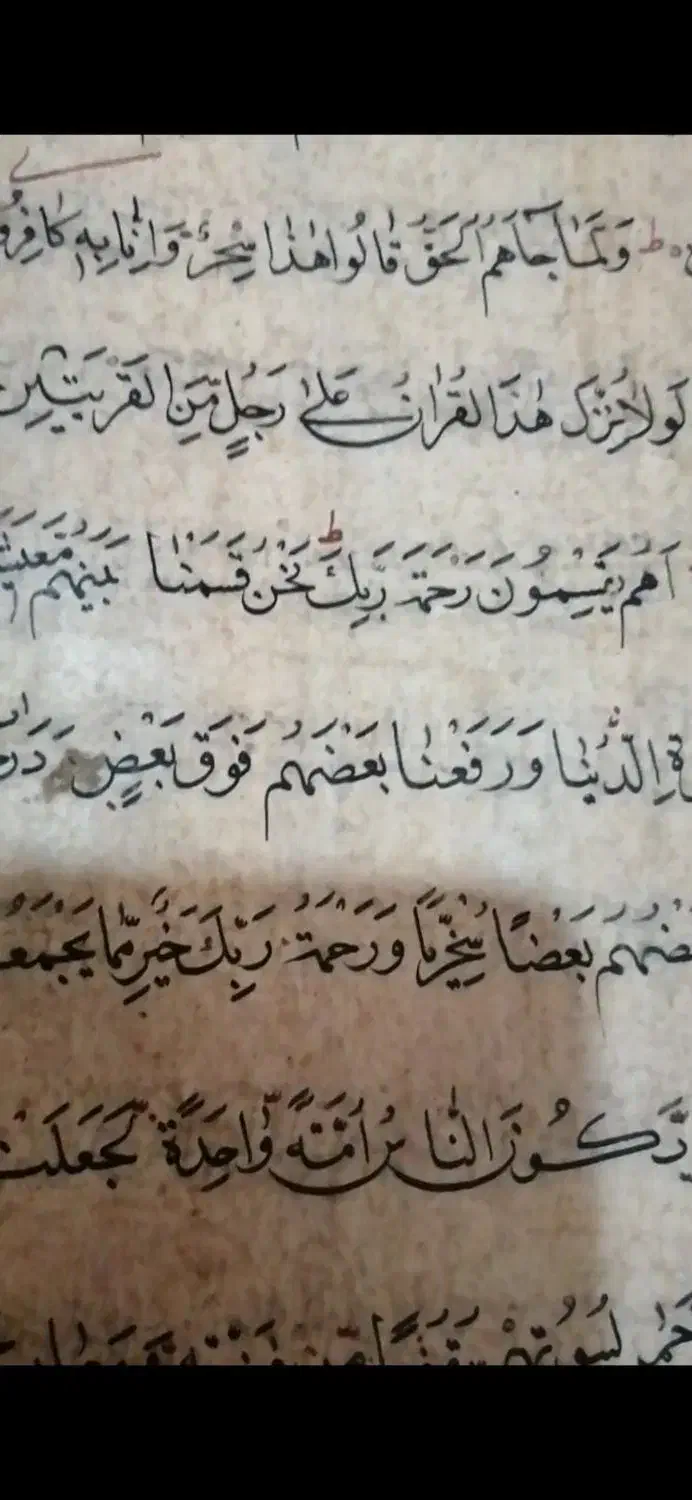 ط وَلَمَّا جَآءَهُمُ الْحَقُّ قَالُوا هٰذَا سِحْرٌ وَاِنَّا بِهٖ كَافِرُو
لَوْلَا نُزِّلَ هٰذَا الْقُرْاٰنُ عَلٰى رَجُلٍ مِّنَ الْقَرْيَتَيْنِ
اَهُمْ يَقْسِمُونَ رَحْمَةَ رَبِّكَ ط نَحْنُ قَسَمْنَا بَيْنَهُمْ مَّعِيْشَ
ةِ الدُّنْيَا وَرَفَعْنَا بَعْضَهُمْ فَوْقَ بَعْضٍ دَرَ
ضُهُمْ بَعْضًا سُخْرِيًّا وَرَحْمَةُ رَبِّكَ خَيْرٌ مِّمَّا يَجْمَعُ
يَّكُوْنَ النَّاسُ اُمَّةً وَّاحِدَةً لَجَعَلْنَ